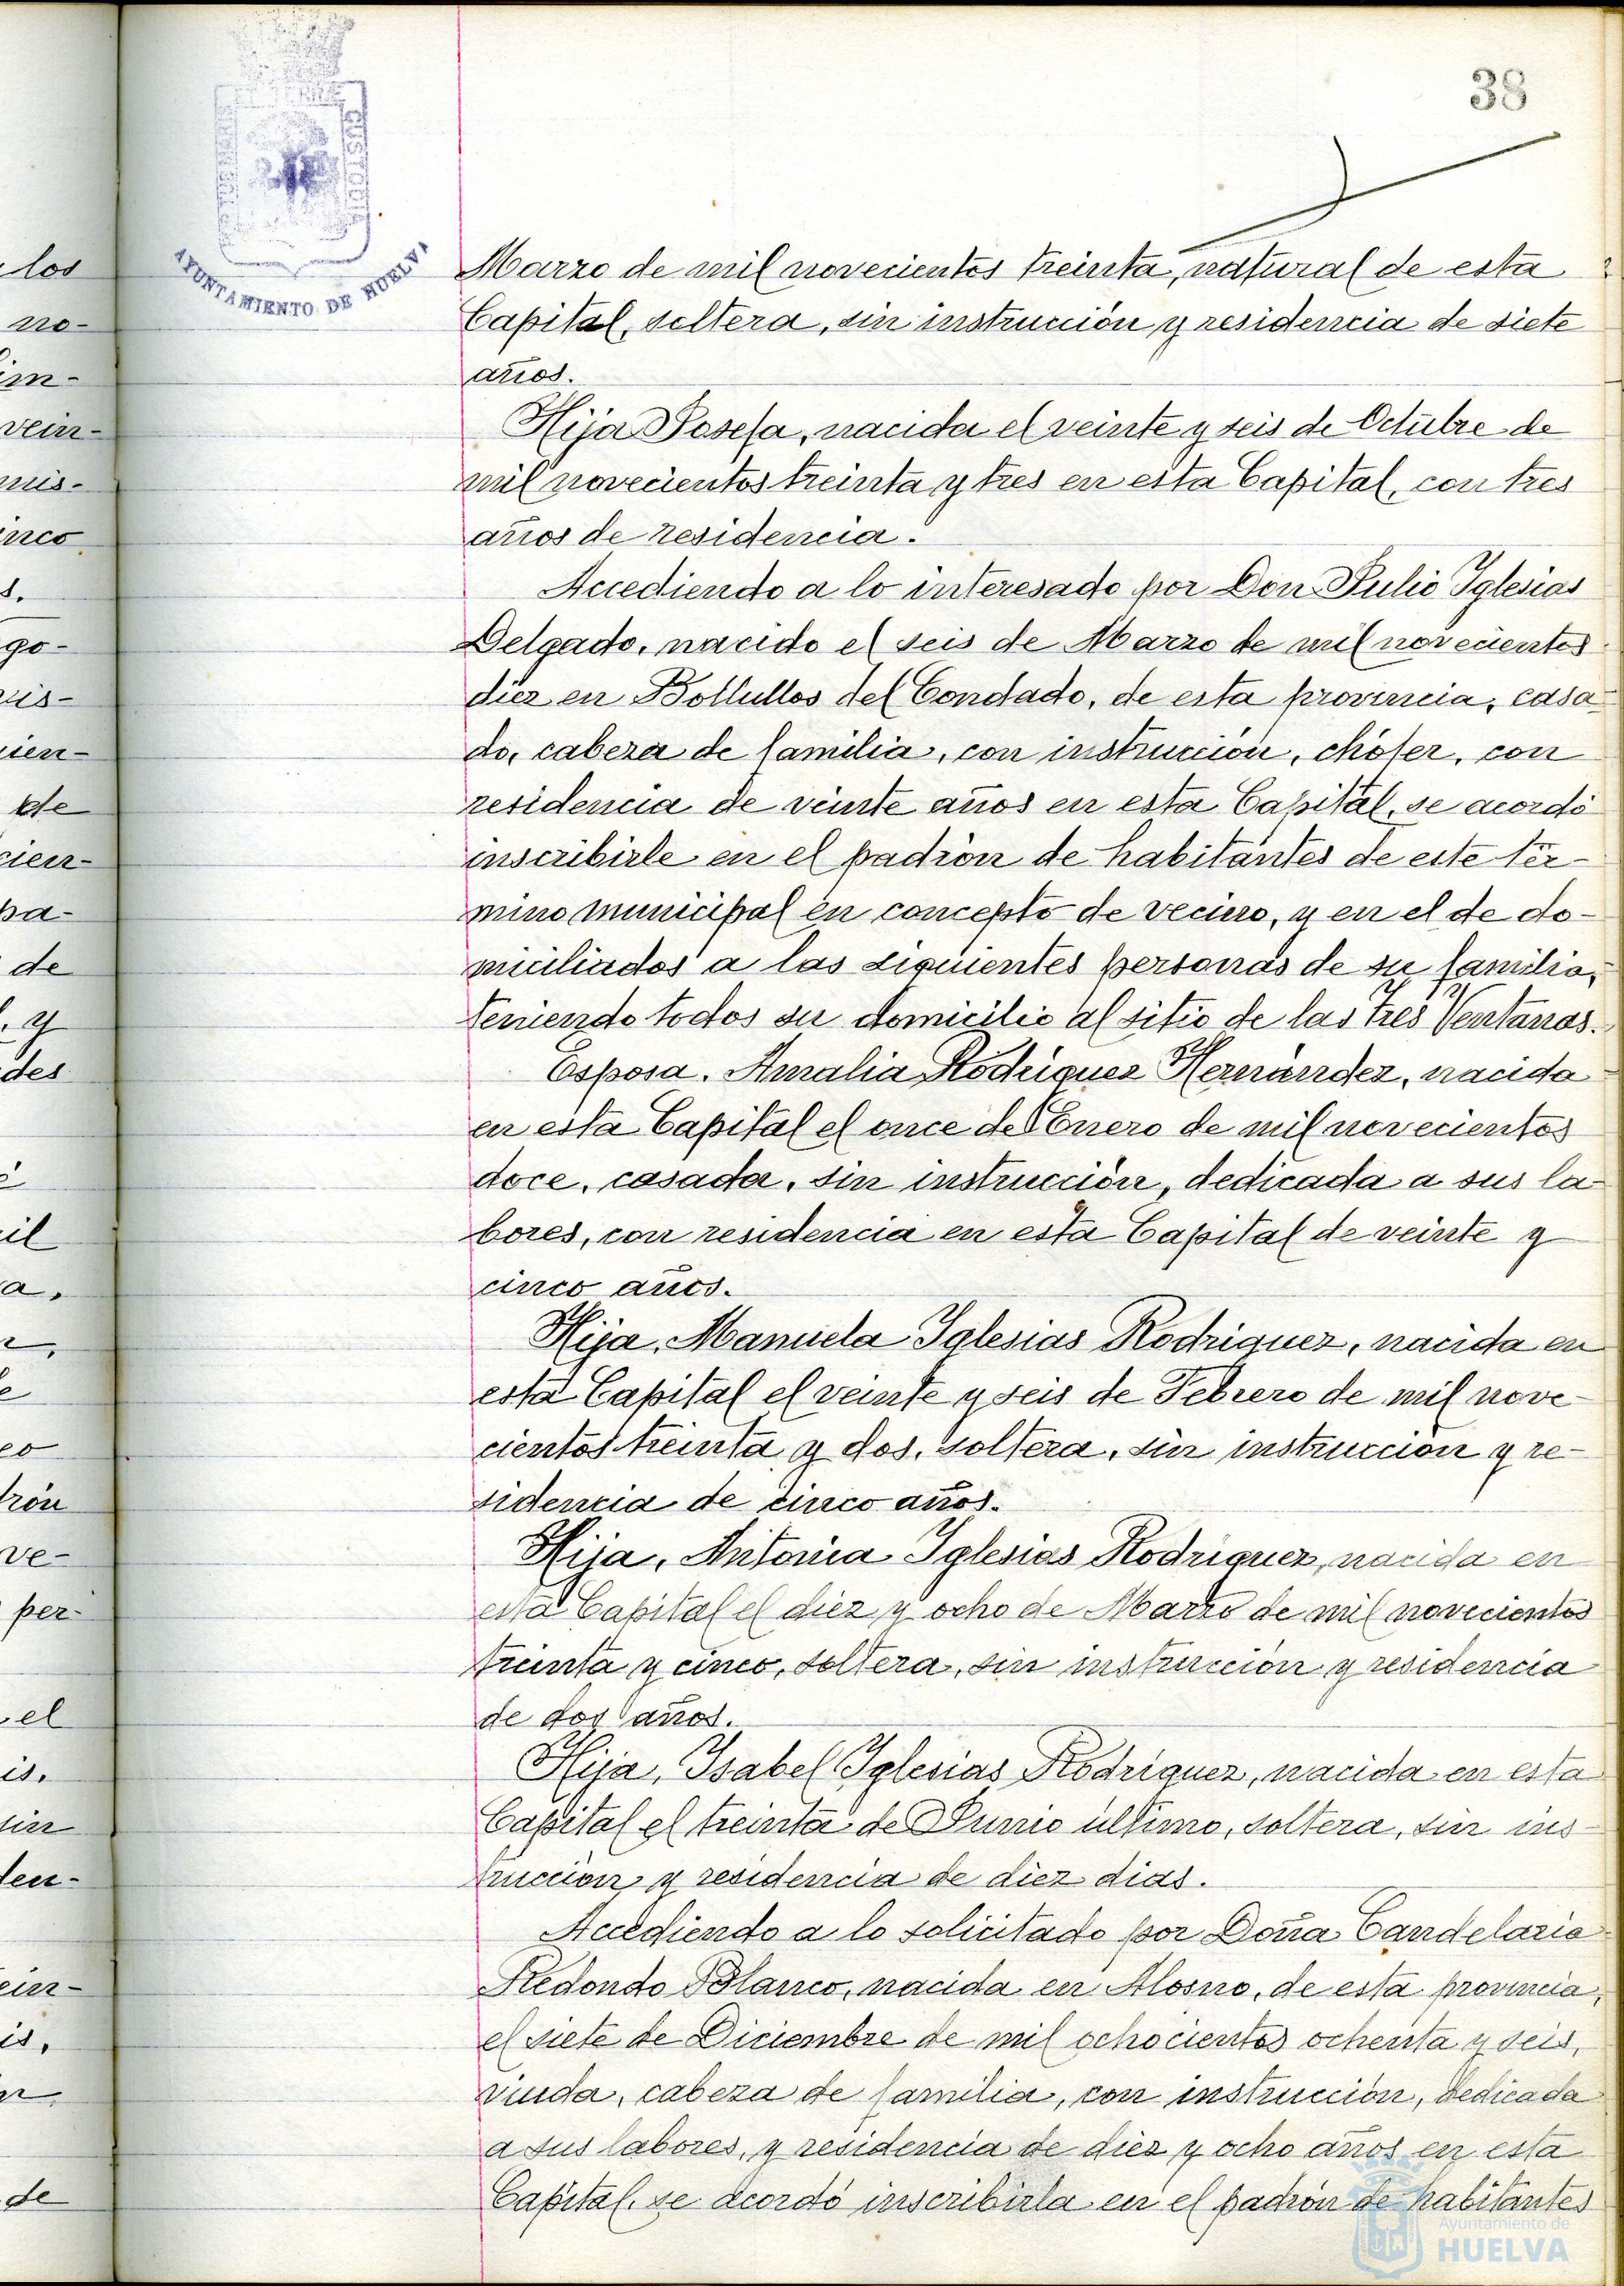 38
AYUNTAMIENTO DE HUELVA
Marzo de mil novecientos treinta, natural de esta
Capital, soltera, sin instrucción y residencia de siete
años.
Hija Josefa, nacida el veinte y seis de Octubre de
mil novecientos treinta y tres en esta Capital, con tres
años de residencia.
Accediendo a lo interesado por Don Julio Yglesias
Delgado, nacido el seis de Marzo de mil novecientos
diez en Bollullos del Condado, de esta provincia, casa-
do, cabeza de familia, con instrucción, chófer, con
residencia de veinte años en esta Capital, se acordó
inscribirle en el padrón de habitantes de este tér-
mino municipal en concepto de vecino, y en el de do-
miciliados a las siguientes personas de su familia,
teniendo todos su domicilio al sitio de las tres Ventanas.
Esposa. Amalia Rodriguez Hernández, nacida
en esta Capital el once de Enero de mil novecientos
doce, casada, sin instrucción, dedicada a sus la-
bores, con residencia en esta Capital de veinte y
cinco años.
Hija, Manuela Iglesias Rodriguez, nacida en
esta Capital el veinte y seis de Febrero de mil nove-
cientos treinta y dos, soltera, sin instrucción y re-
sidencia de cinco años.
Hija, Antonia Iglesias Rodriguez, nacida en
esta Capital el diez y ocho de Marzo de mil novecientos
treinta y cinco, soltera, sin instrucción y residencia
de dos años.
Hija, Ysabel Yglesias Rodriguez, nacida en esta
Capital el treinta de Junio último, soltera, sin ins-
trucción y residencia de diez dias.
Accediendo a lo solicitado por Doña Candelaria
Redondo Blanco, nacida en Alosno, de esta provincia,
el siete de Diciembre de mil ochocientos ochenta y seis,
viuda, cabeza de familia, con instrucción, dedicada
a sus labores, y residencia de diez y ocho años en esta
Capital, se acordó inscribirla en el padrón de habitantes
Ayuntamiento de
HUELVA